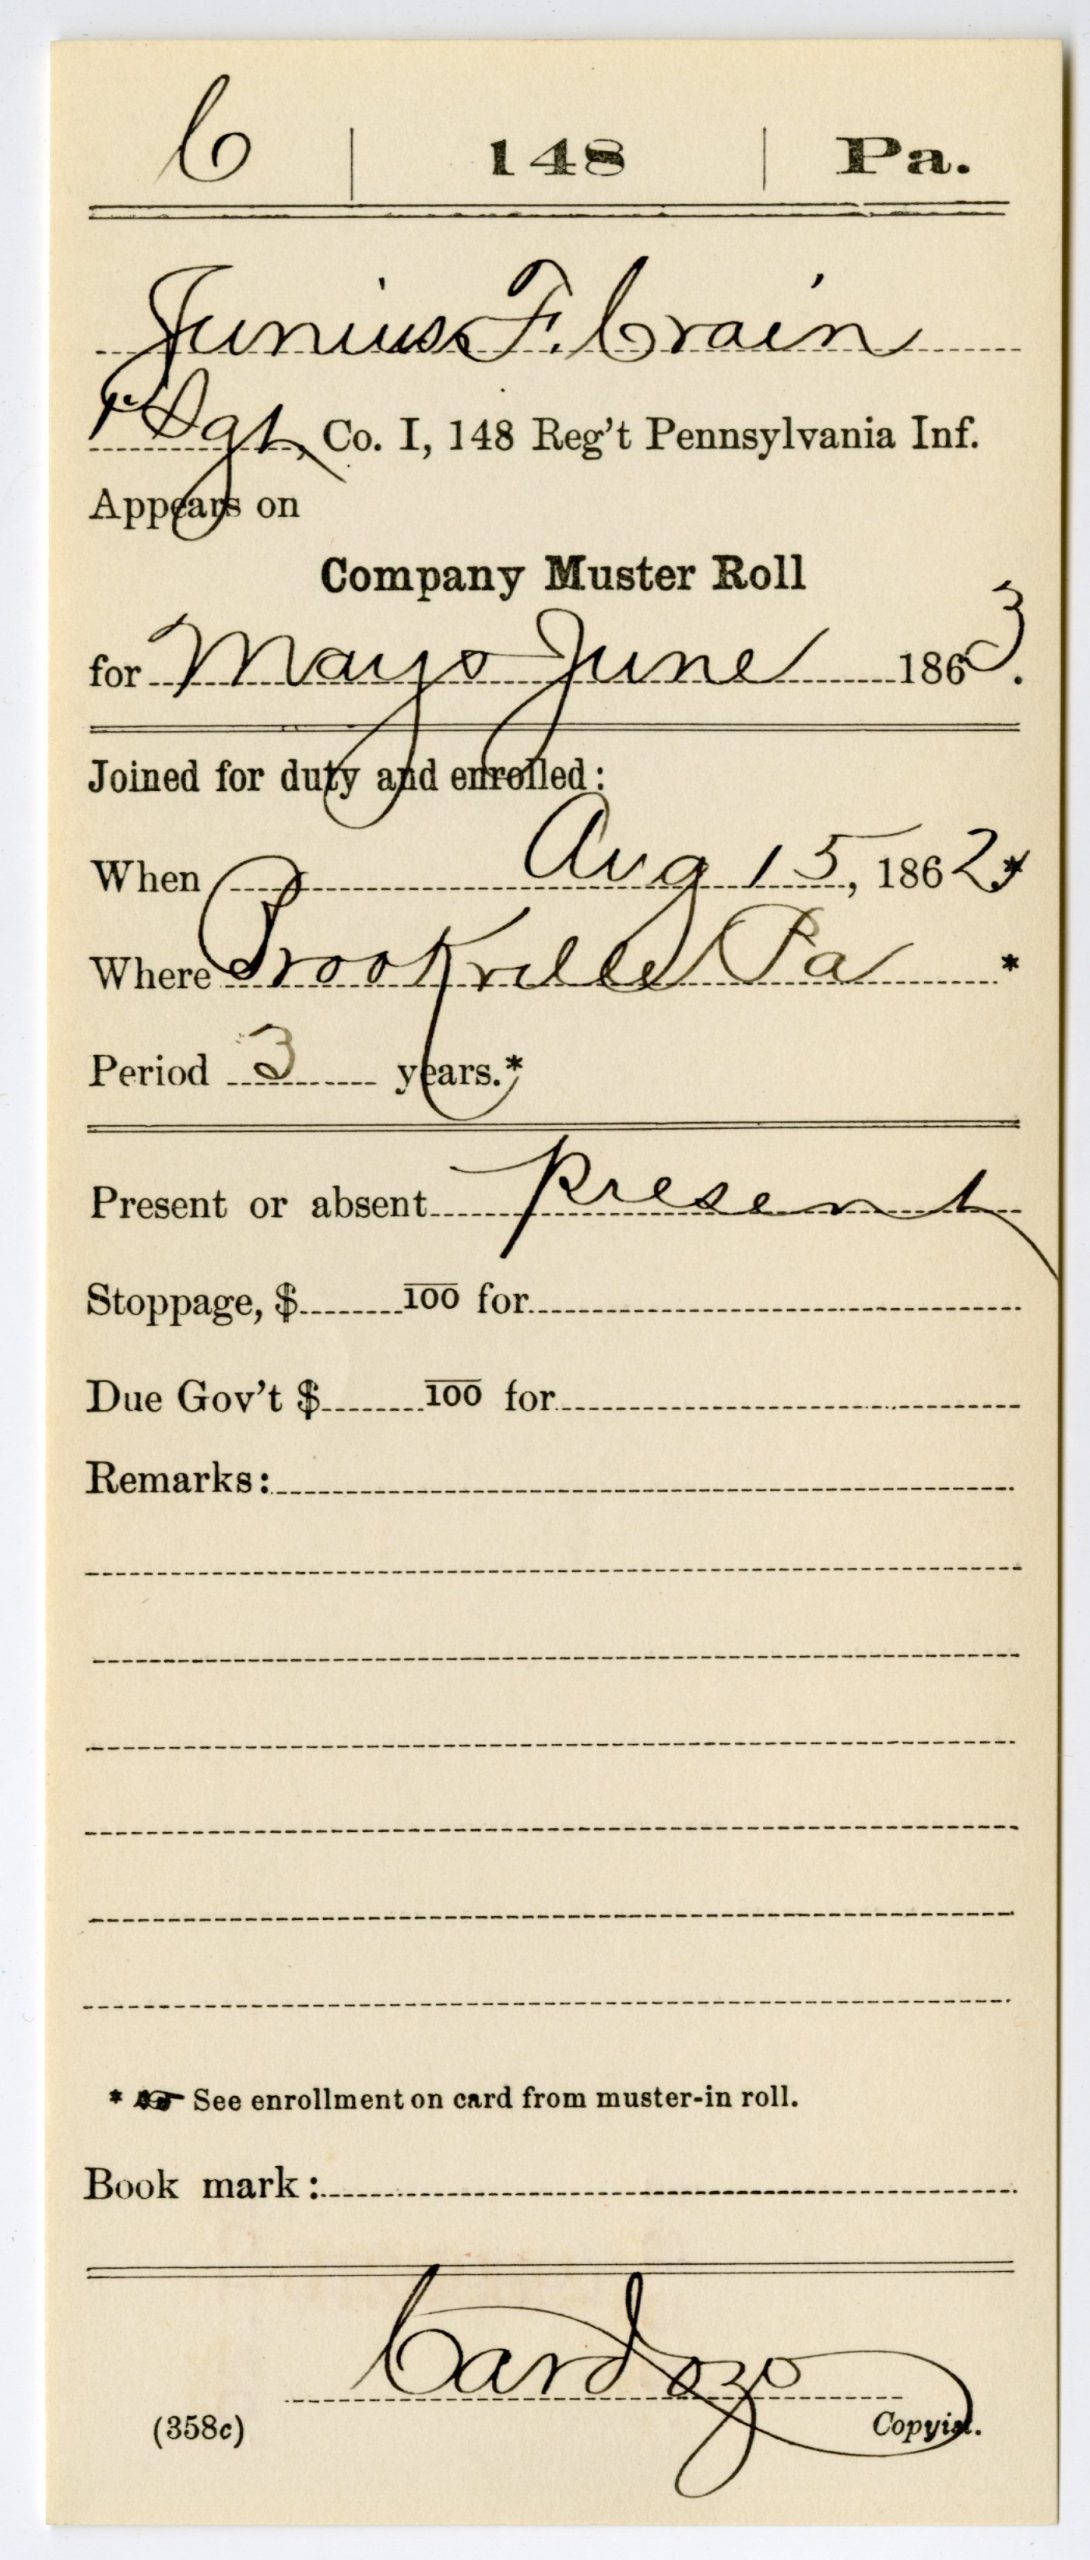 C | 148 | Pa.
Junius F. Crain
1" Sgt, Co. I, 148 Reg't Pennsylvania Inf.
Appears on
Company Muster Roll
for May & June 1863.
Joined for duty and enrolled:
When Aug 15, 1862*
Where Brookville Pa *
Period 3 years.*
Present or absent Present
Stoppage, $ 100 for
Due Gov't $ 100 for
Remarks:
* ☞ See enrollment on card from muster-in roll.
Book mark:
Cardozo
(358c) Copyist.